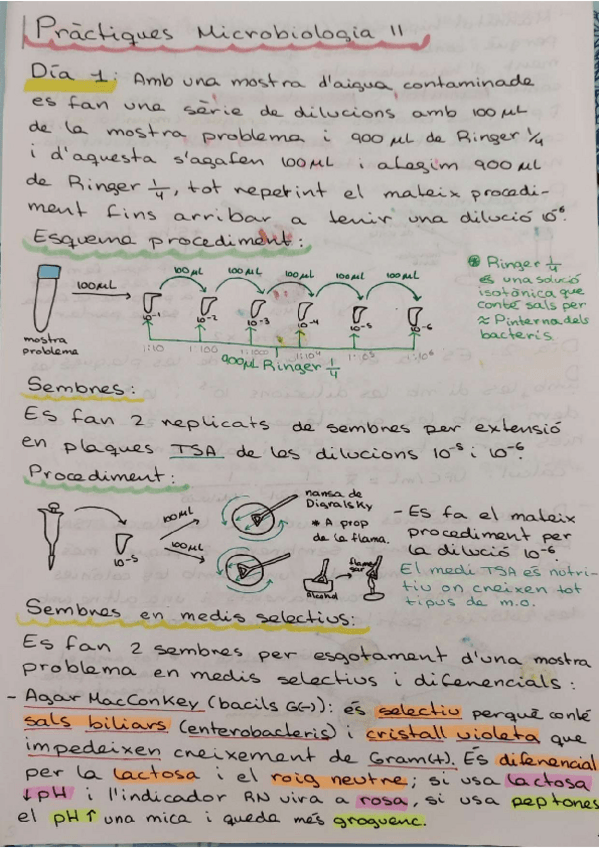 Pràctiques Microbiologia II
Día 1: Amb una mostra d'aigua contaminada
es fan una sèrie de dilucions amb 100 µL
de la mostra problema i 900 µL de Ringer 1/4
i d'aquesta s'agafen 100 µL i afegim 900 µL
de Ringer 1/4, tot repetint el mateix procedi-
ment fins arribar a tenir una dilució 10⁻⁶.
Esquema procediment:
100 µL
100 µL 100 µL 100 µL 100 µL 100 µL
10⁻¹ 10⁻² 10⁻³ 10⁻⁴ 10⁻⁵ 10⁻⁶
mostra
problema
1:10 1:100 1:1000 1:10⁴ 1:10⁵ 1:10⁶
900 µL Ringer 1/4
* Ringer 1/4
és una solució
isotònica que
conté sals per
≈ Pinterna dels
bacteris
Sembres:
Es fan 2 replicats de sembres per extensió
en plaques TSA de les dilucions 10⁻⁵ i 10⁻⁶.
Procediment:
10⁻⁵
100 µL
100 µL
nansa de
Digralsky
* A prop
de la flama.
alcohol
flame
jar
- Es fa el mateix
procediment per
la dilució 10⁻⁶.
El medi TSA és nutri-
tiu on creixen tot
tipus de m.o.
Sembres en medis selectius:
Es fan 2 sembres per esgotament d'una mostra
problema en medis selectius i diferencials:
- Agar MacConkey (bacils G(-)): és selectiu perquè conté
sals biliars (enterobacteris) i cristall violeta que
impedeixen creixement de Gram(+). És diferencial
per la lactosa i el roig neutre; si usa lactosa
↓pH i l'indicador RN vira a rosa, si usa peptones
el pH↑ una mica i queda més groguenc.